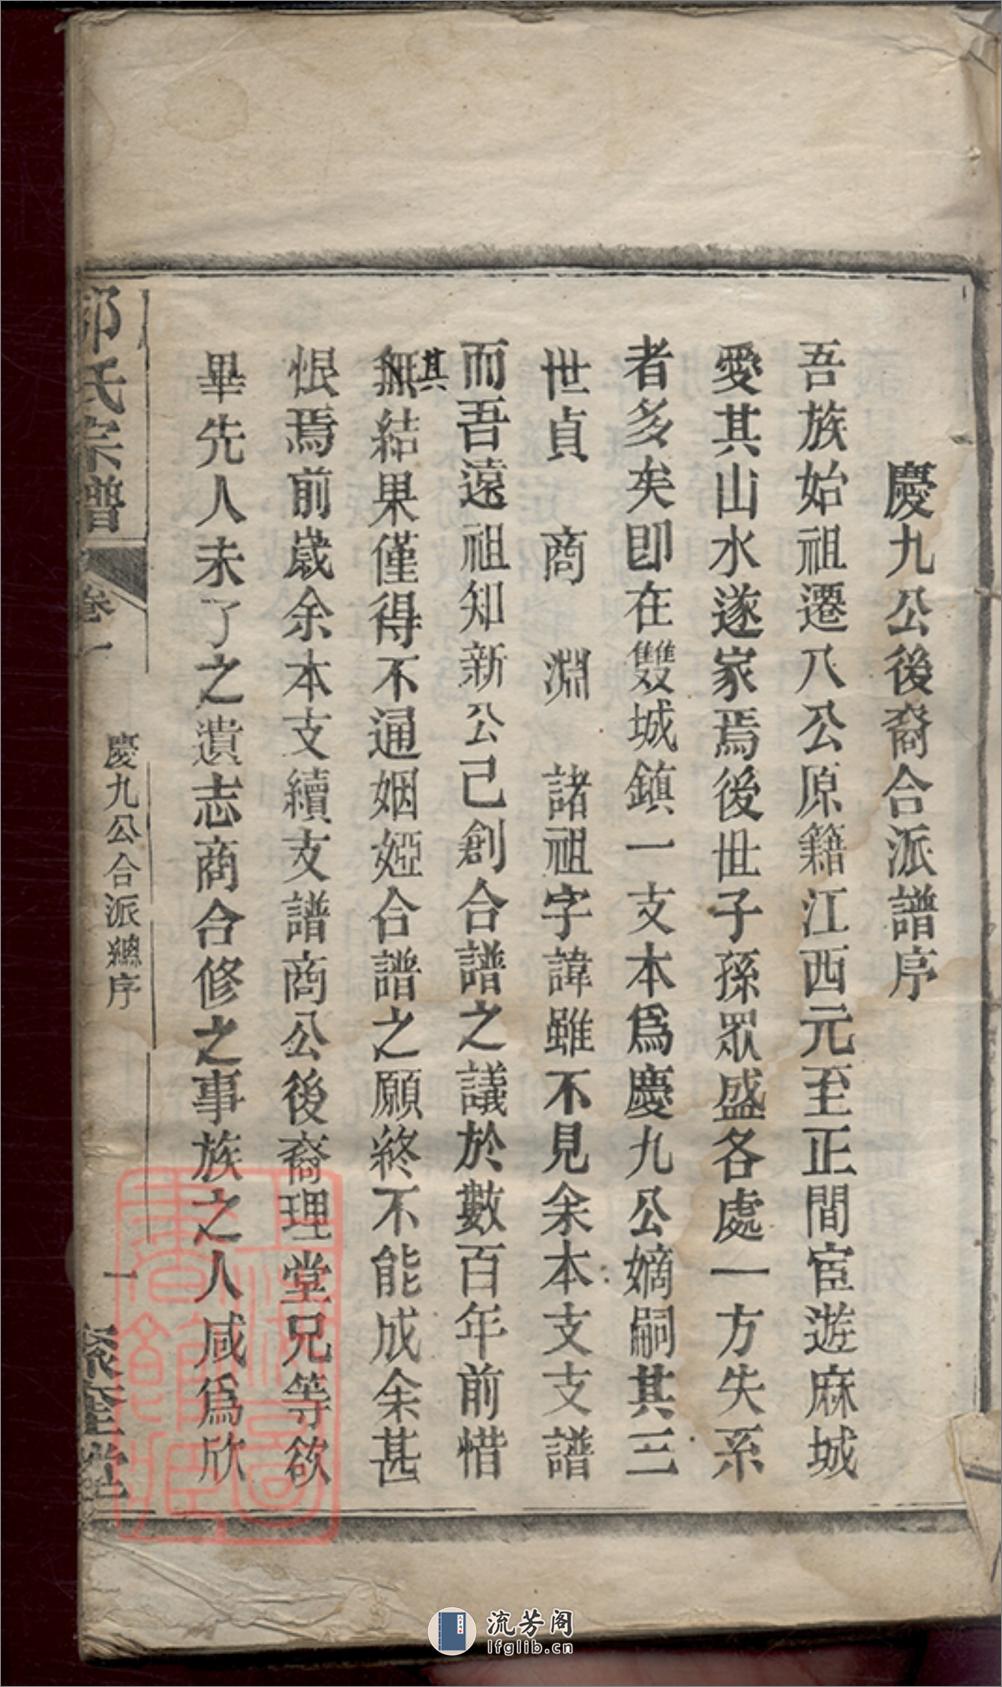 慶九公後裔合派譜序
吾族始祖遷八公原籍江西元至正間宦遊麻城
愛其山水遂家焉後世子孫眾盛各處一方失系
者多矣即在雙城鎮一支本爲慶九公嫡嗣其三
世貞　商　淵　諸祖字諱雖不見余本支支譜
而吾遠祖知新公己創合譜之議於數百年前惜
其
無結果僅得不通姻婭合譜之願終不能成余甚
恨焉前歲余本支續支譜商公後裔理堂兄等欲
畢先人未了之遺志商合修之事族之人咸爲欣
氏宗譜
卷一
慶九公合派總序
一
堂
流芳阁
lfglib.cn